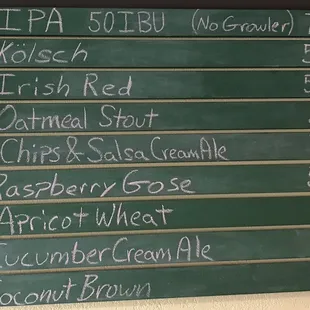 IPA 50IBU (No Growler)
Kölsch 5
Irish Red 5
Oatmeal Stout
Chips & Salsa Cream Ale
Raspberry Gose
Apricot Wheat
Cucumber Cream Ale
Coconut Brown